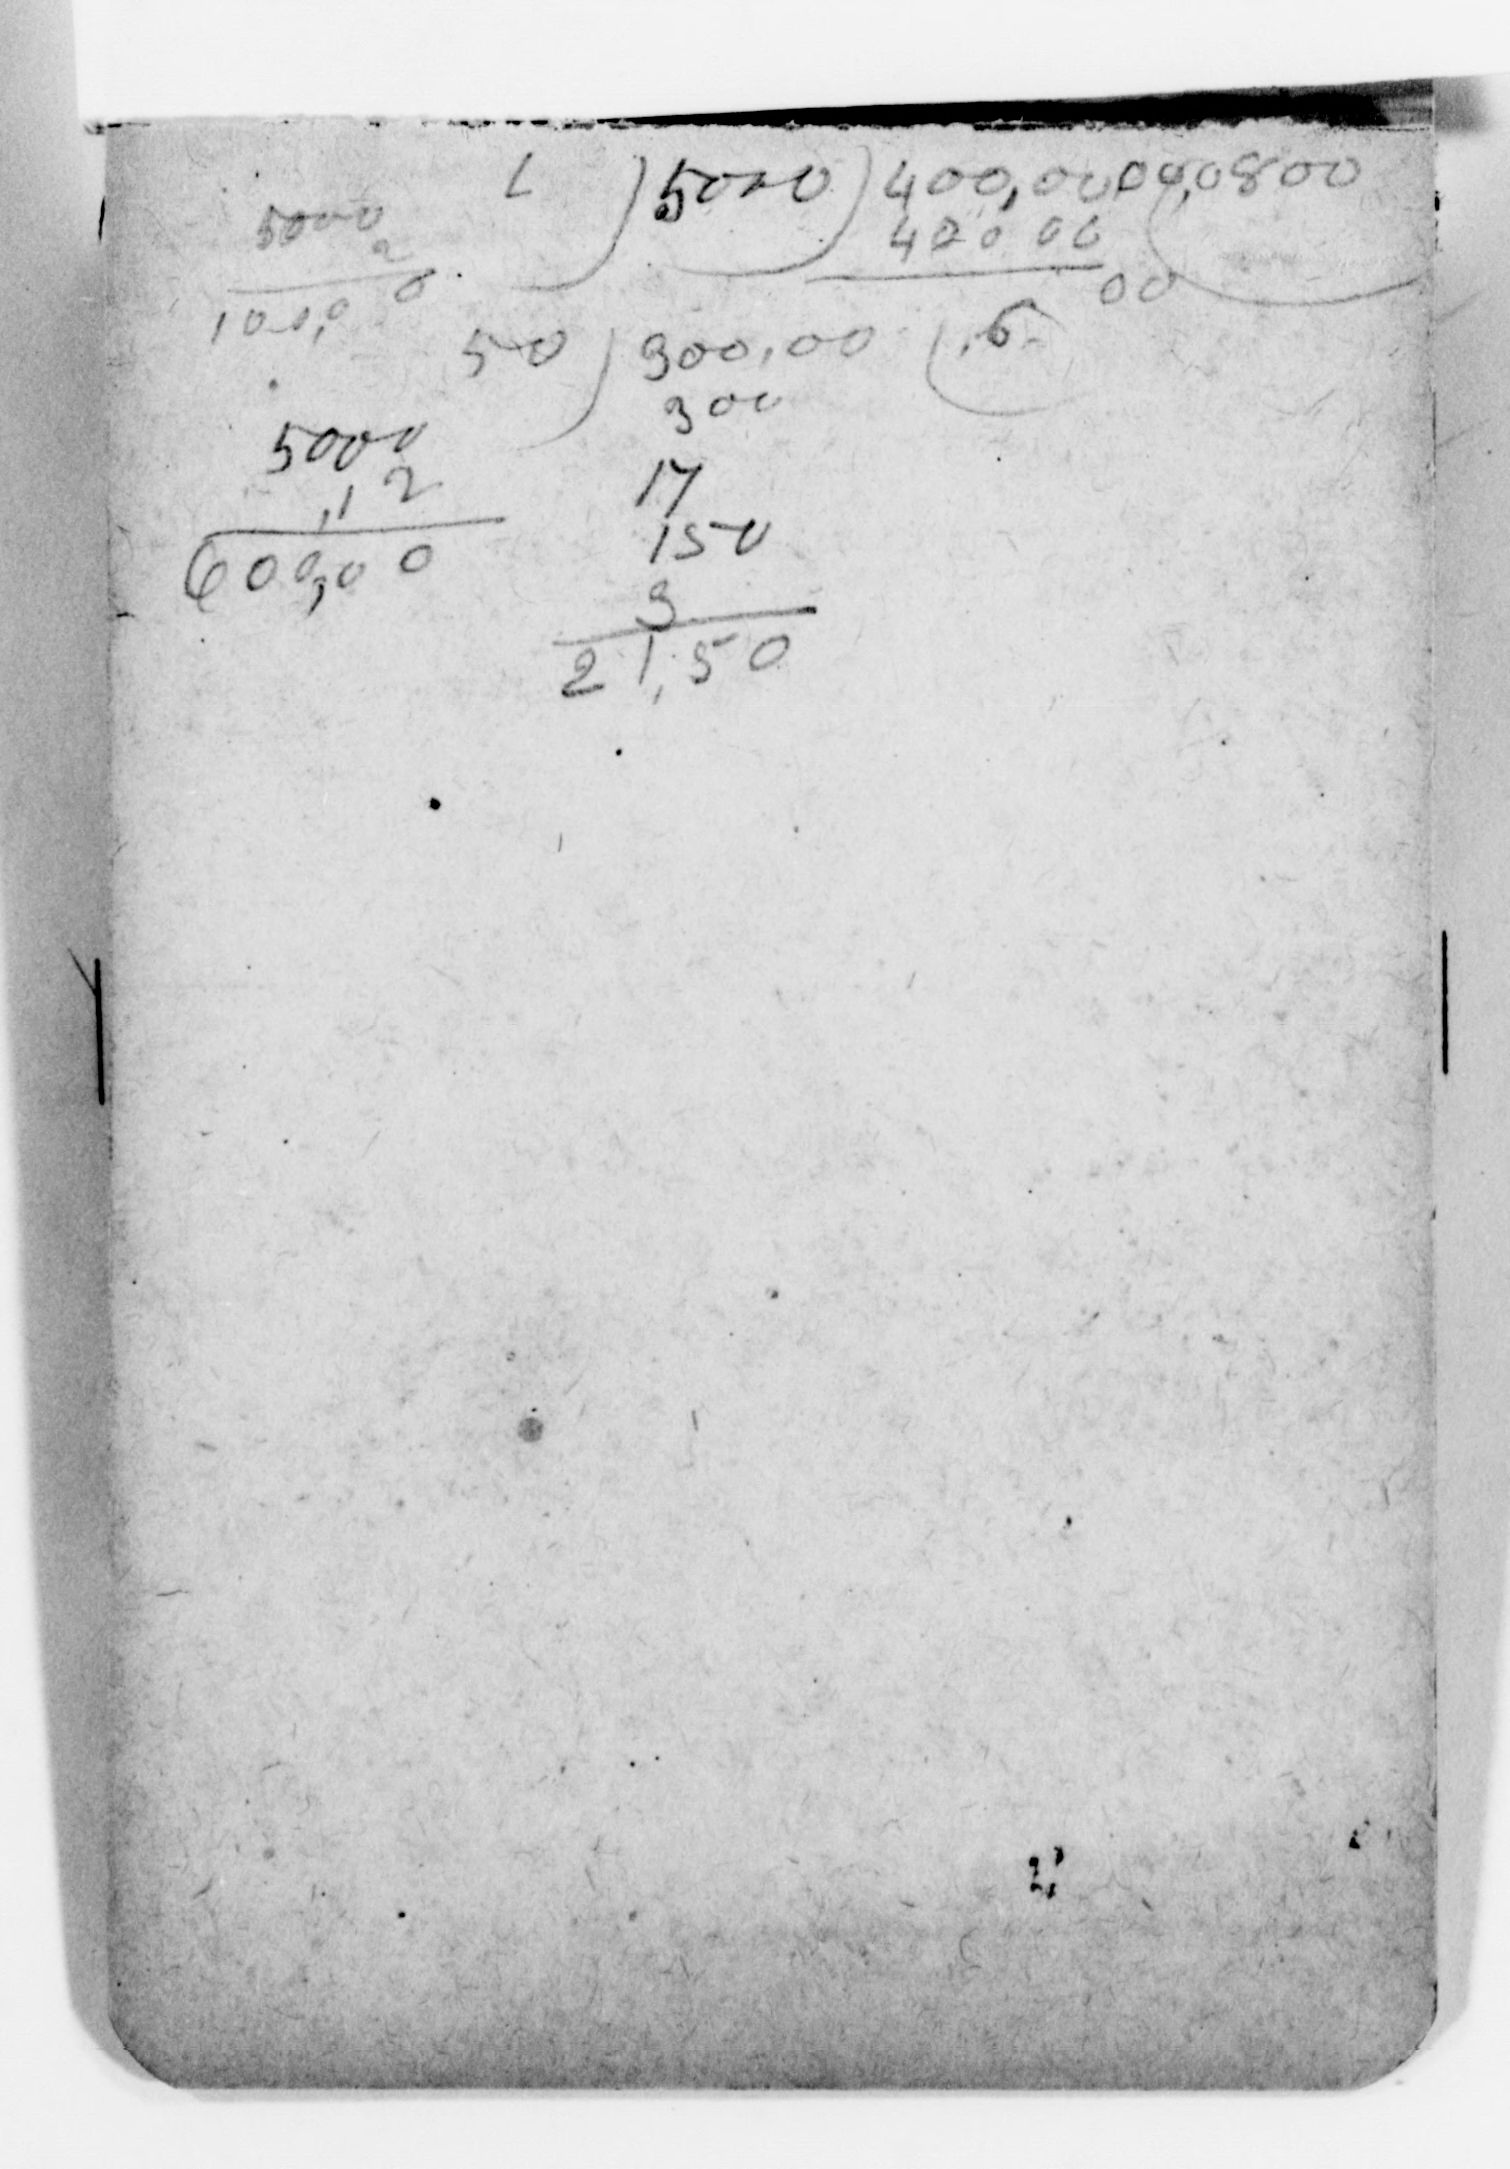 5000 ) 400,0000,0800
400000
00
5000
2
100,00
50 ) 300,00 ( .6
300
5000
,12
600,00
17
150
3
21,50